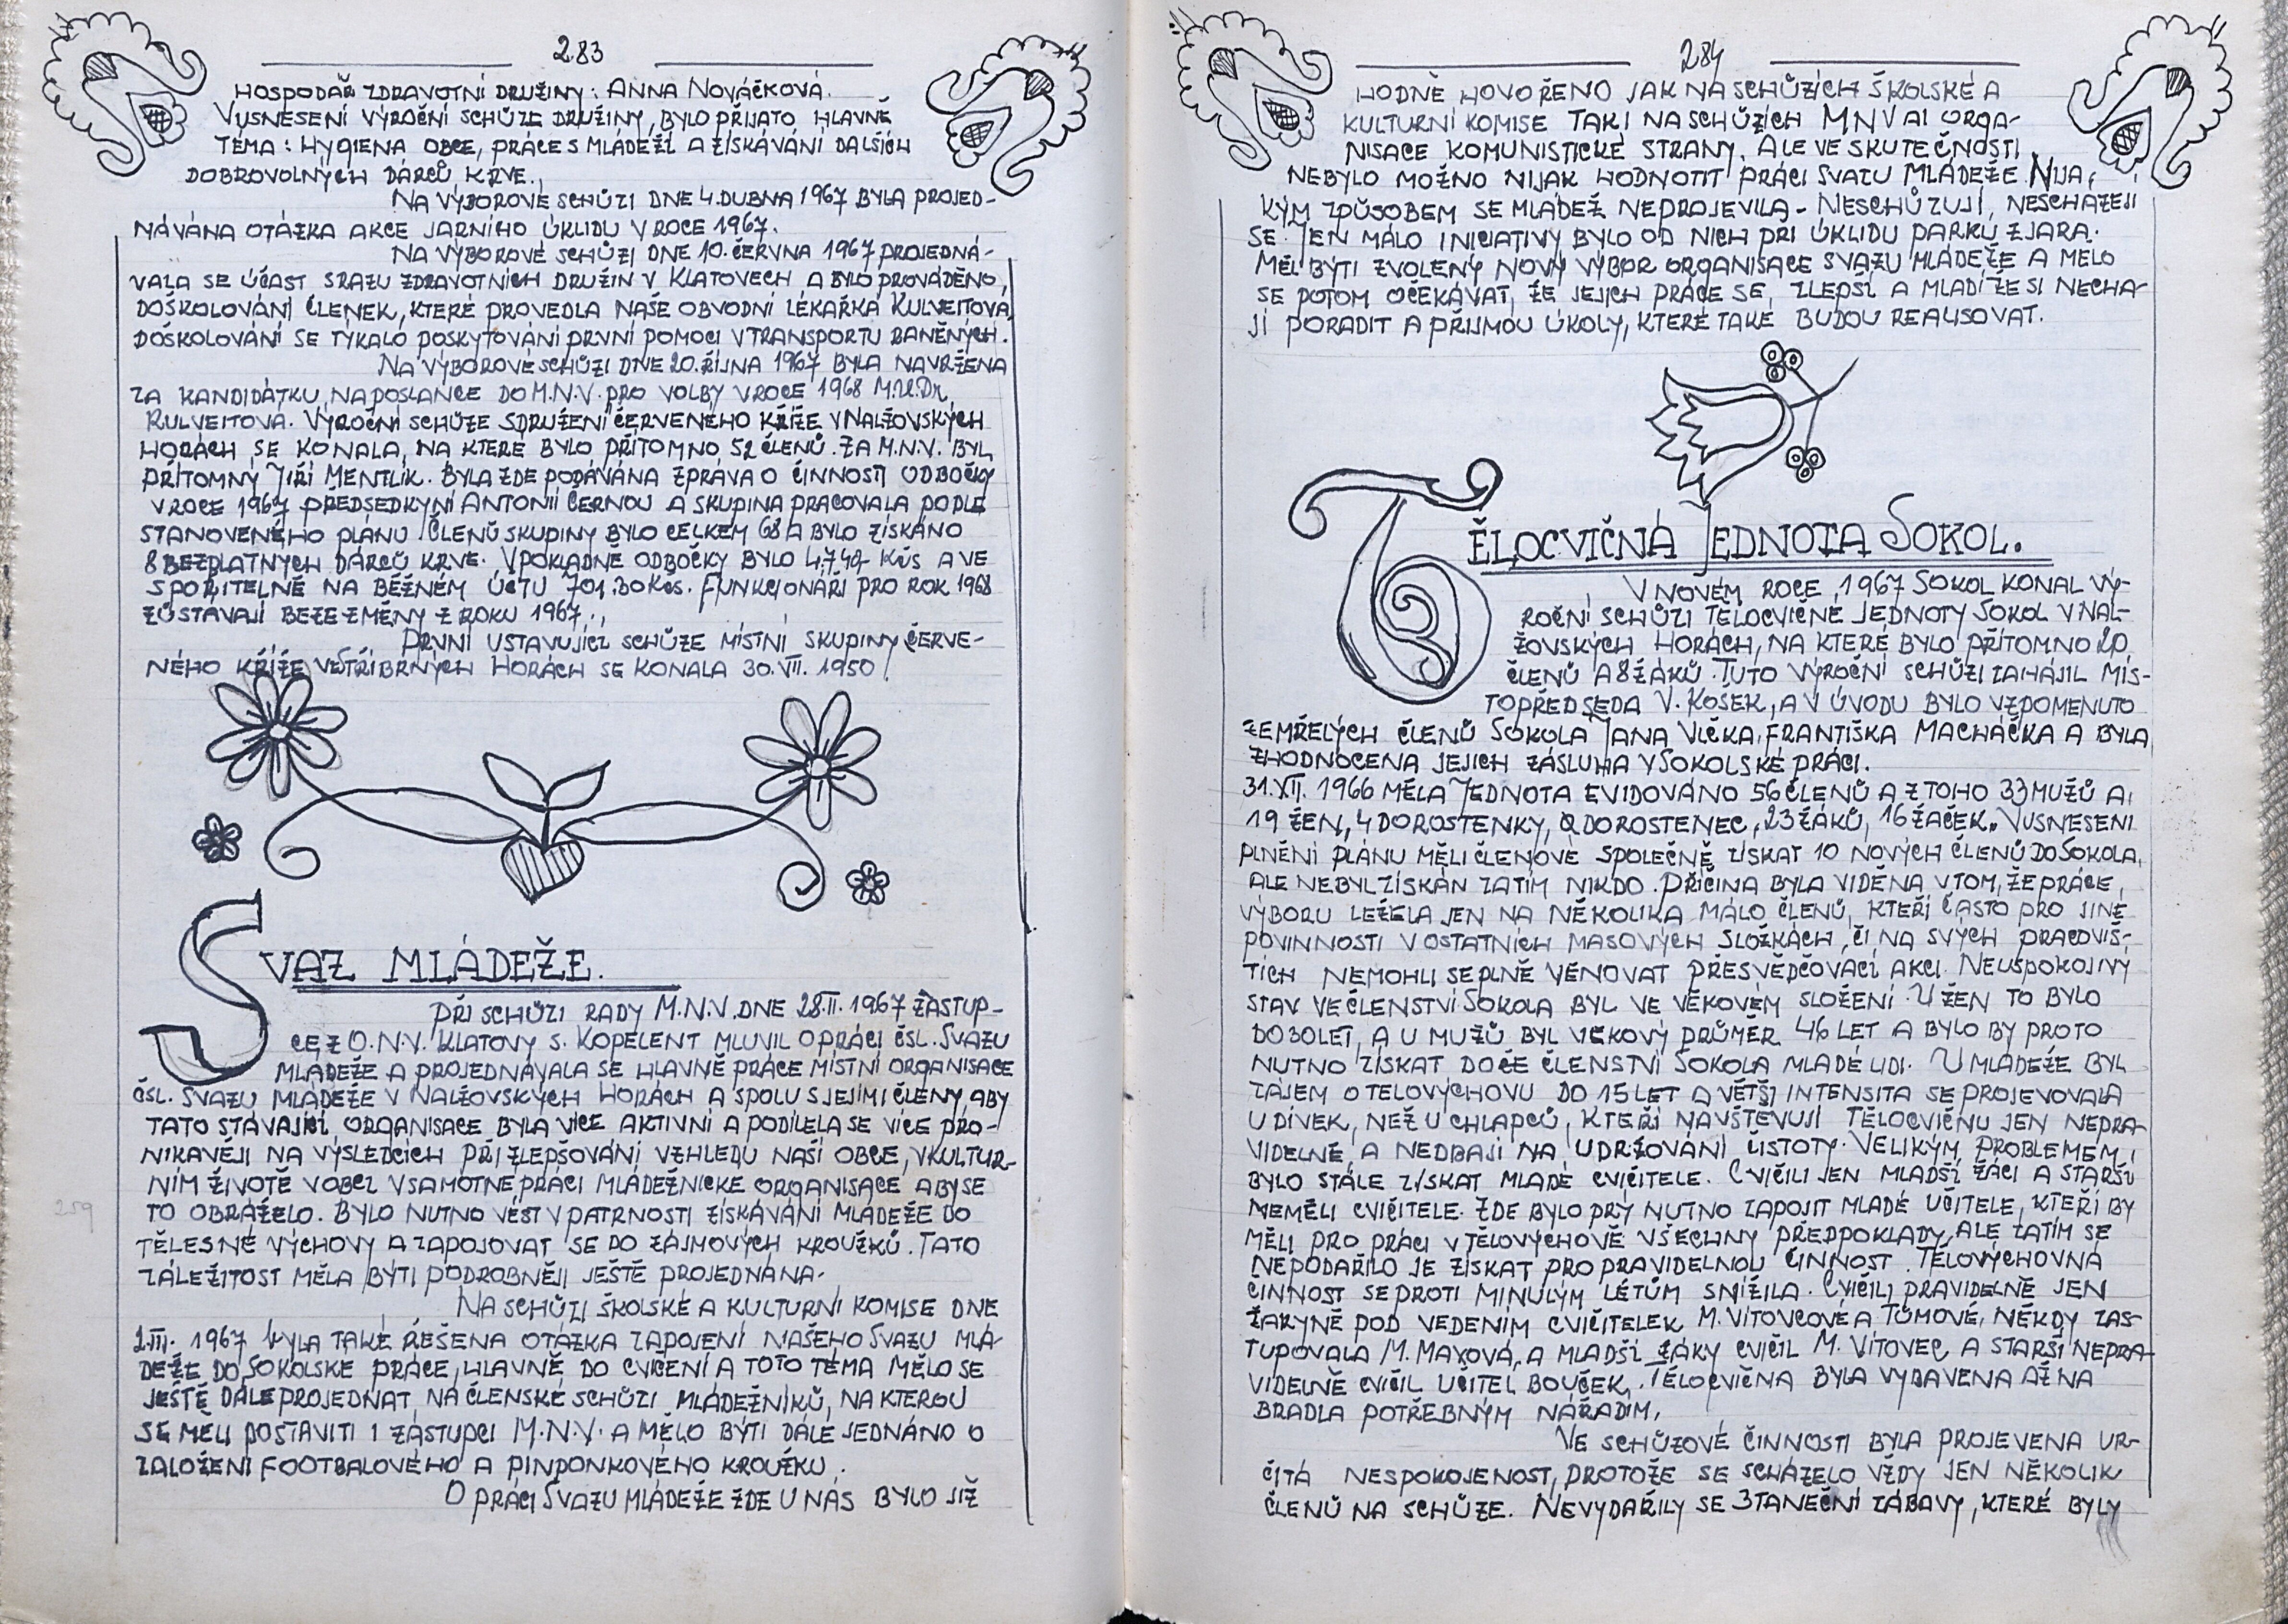 283
HOSPODAŘ ZDRAVOTNÍ DRUŽINY: ANNA NOVÁČKOVÁ.
V USNESENÍ VÝROČNÍ SCHŮZE DRUŽINY, BYLO PŘIJATO HLAVNĚ
TÉMA: HYGIENA OBCE, PRÁCE S MLÁDEŽÍ A ZÍSKÁVÁNÍ DALŠÍCH
DOBROVOLNÝCH DÁRCŮ KRVE.
NA VÝBOROVÉ SCHŮZI DNE 4. DUBNA 1967 BYLA PROJED-
NÁVÁNA OTÁZKA AKCE JARNÍHO ÚKLIDU V ROCE 1967.
NA VÝBOROVÉ SCHŮZI DNE 10. ČERVNA 1967 PROJEDNÁ-
VALA SE ÚČAST SRAZU ZDRAVOTNÍCH DRUŽIN V KLATOVECH A BYLO PROVÁDĚNO,
DOŠKOLOVÁNÍ ČLENEK, KTERÉ PROVEDLA NAŠE OBVODNÍ LÉKAŘKA KULVEITOVÁ,
DOŠKOLOVÁNÍ SE TÝKALO POSKYTOVÁNÍ PRVNÍ POMOCI V TRANSPORTU RANĚNÝCH.
NA VÝBOROVÉ SCHŮZI DNE 20. ŘÍJNA 1967 BYLA NAVRŽENA
ZA KANDIDÁTKU NA POSLANCE DO M.N.V. PRO VOLBY V ROCE 1968 M.U.Dr.
KULVEITOVÁ. VÝROČNÍ SCHŮZE SDRUŽENÍ ČERVENÉHO KŘÍŽE V NALŽOVSKÝCH
HORÁCH SE KONALA, NA KTERÉ BYLO PŘÍTOMNO 52 ČLENŮ. ZA M.N.V. BYL
PŘÍTOMNÝ JIŘÍ MENTLÍK. BYLA ZDE PODÁVÁNA ZPRÁVA O ČINNOSTI ODBOČKY
V ROCE 1967 PŘEDSEDKYNÍ ANTONII ČERNOU A SKUPINA PRACOVALA PODLE
STANOVENÉHO PLÁNU. ČLENŮ SKUPINY BYLO CELKEM 68 A BYLO ZÍSKÁNO
8 BEZPLATNÝCH DÁRCŮ KRVE. V POKLADNĚ ODBOČKY BYLO 47.40 Kčs A VE
SPOŘITELNĚ NA BĚŽNÉM ÚČTU 701.30 Kčs. FUNKCIONÁŘI PRO ROK 1968
ZŮSTÁVAJÍ BEZE ZMĚNY Z ROKU 1967.
PRVNÍ USTAVUJÍCÍ SCHŮZE MÍSTNÍ SKUPINY ČERVE-
NÉHO KŘÍŽE VE STŘÍBRNÝCH HORÁCH SE KONALA 30. VII. 1950
SVAZ MLÁDEŽE.
PŘI SCHŮZI RADY M.N.V. DNE 28. II. 1967 ZÁSTUP-
CE Z O.N.V. KLATOVY S. KOPELENT MLUVIL O PRÁCI ČSL. SVAZU
MLÁDEŽE A PROJEDNÁVALA SE HLAVNĚ PRÁCE MÍSTNÍ ORGANISACE
ČSL. SVAZU MLÁDEŽE V NALŽOVSKÝCH HORÁCH A SPOLU S JEJÍMI ČLENY, ABY
TATO STÁVAJÍCÍ ORGANISACE BYLA VÍCE AKTIVNÍ A PODÍLELA SE VÍCE PRO-
NIKAVĚJI NA VÝSLEDCÍCH PŘI ZLEPŠOVÁNÍ VZHLEDU NAŠÍ OBCE, V KULTUR-
NÍM ŽIVOTĚ V OBCI V SAMOTNÉ PRÁCI MLÁDEŽNICKÉ ORGANISACE ABY SE
TO OBRÁŽELO. BYLO NUTNO VÉST V PATRNOSTI ZÍSKÁVÁNÍ MLÁDEŽE DO
TĚLESNÉ VÝCHOVY A ZAPOJOVAT SE DO ZÁJMOVÝCH KROUŽKŮ. TATO
ZÁLEŽITOST MĚLA BÝTI PODROBNĚJI JEŠTĚ PROJEDNÁNA.
259
NA SCHŮZI ŠKOLSKÉ A KULTURNÍ KOMISE DNE
2. III. 1967 BYLA TAKÉ ŘEŠENA OTÁZKA ZAPOJENÍ NAŠEHO SVAZU MLÁ-
DEŽE DO SOKOLSKÉ PRÁCE, HLAVNĚ DO CVIČENÍ A TOTO TÉMA MĚLO SE
JEŠTĚ DÁLE PROJEDNAT, NA ČLENSKÉ SCHŮZI MLÁDEŽNÍKŮ, NA KTEROU
SE MĚLI DOSTAVITI 1 ZÁSTUPCI M.N.V. A MĚLO BÝTI DÁLE JEDNÁNO O
ZALOŽENÍ FOOTBALOVÉHO A PINPONKOVÉHO KROUŽKU.
O PRÁCI SVAZU MLÁDEŽE ZDE U NÁS BYLO JIŽ
284
HODNĚ HOVOŘENO JAK NA SCHŮZÍCH ŠKOLSKÉ A
KULTURNÍ KOMISE TAK I NA SCHŮZÍCH MNV A I ORGA-
NISACE KOMUNISTICKÉ STRANY. ALE VE SKUTEČNOSTI
NEBYLO MOŽNO NIJAK HODNOTIT PRÁCI SVAZU MLÁDEŽE. NIJA-
KÝM ZPŮSOBEM SE MLÁDEŽ NEPROJEVILA - NESCHŮZUJÍ, NESCHÁZEJÍ
SE. JEN MÁLO INICIATIVY BYLO OD NICH PŘI ÚKLIDU PARKU Z JARA.
MĚL BÝTI ZVOLENÝ NOVÝ VÝBOR ORGANISACE SVAZU MLÁDEŽE A MĚLO
SE POTOM OČEKÁVAT, ŽE JEJICH PRÁCE SE ZLEPŠÍ A MLADÍ ŽE SI NECHA-
JÍ PORADIT A PŘIJMOU ÚKOLY, KTERÉ TAKÉ BUDOU REALISOVAT.
TĚLOCVIČNÁ JEDNOTA SOKOL.
V NOVÉM ROCE 1967 SOKOL KONAL VÝ-
ROČNÍ SCHŮZI TĚLOCVIČNÉ JEDNOTY SOKOL V NAL-
ŽOVSKÝCH HORÁCH, NA KTERÉ BYLO PŘÍTOMNO 20
ČLENŮ A 8 ŽÁKŮ. TUTO VÝROČNÍ SCHŮZI ZAHÁJIL MÍS-
TOPŘEDSEDA V. KOŠEK, A V ÚVODU BYLO VZPOMENUTO
ZEMŘELÝCH ČLENŮ SOKOLA JANA VLČKA, FRANTIŠKA MACHÁČKA A BYLA
ZHODNOCENA JEJICH ZÁSLUHA V SOKOLSKÉ PRÁCI.
31. XII. 1966 MĚLA JEDNOTA EVIDOVÁNO 56 ČLENŮ A Z TOHO 33 MUŽŮ A
19 ŽEN, 4 DOROSTENKY, 0 DOROSTENEC, 23 ŽÁKŮ, 16 ŽAČEK. V USNESENÍ
PLNĚNÍ PLÁNU MĚLI ČLENOVÉ SPOLEČNĚ ZÍSKAT 10 NOVÝCH ČLENŮ DO SOKOLA,
ALE NEBYL ZÍSKÁN ZATÍM NIKDO. PŘÍČINA BYLA VIDĚNA V TOM, ŽE PRÁCE
VÝBORU LEŽELA JEN NA NĚKOLIKA MÁLO ČLENŮ, KTEŘÍ ČASTO PRO JINÉ
POVINNOSTI V OSTATNÍCH MASOVÝCH SLOŽKÁCH, ČI NA SVÝCH PRACOVIŠ-
TÍCH NEMOHLI SE PLNĚ VĚNOVAT PŘESVĚDČOVACÍ AKCI. NEUSPOKOJIVÝ
STAV VE ČLENSTVÍ SOKOLA BYL VE VĚKOVÉM SLOŽENÍ. U ŽEN TO BYLO
DO 30 LET, A U MUŽŮ BYL VĚKOVÝ PRŮMĚR 46 LET A BYLO BY PROTO
NUTNO ZÍSKAT DO ČE ČLENSTVÍ SOKOLA MLADÉ LIDI. U MLÁDEŽE BYL
ZÁJEM O TĚLOVÝCHOVU DO 15 LET A VĚTŠÍ INTENSITA SE PROJEVOVALA
U DÍVEK, NEŽ U CHLAPCŮ, KTEŘÍ NAVŠTĚVUJÍ TĚLOCVIČNU JEN NEPRA-
VIDELNĚ, A NEDBAJÍ NA UDRŽOVÁNÍ ČISTOTY. VELIKÝM PROBLÉMEM
BYLO STÁLE ZÍSKAT MLADÉ CVIČITELE. CVIČILI JEN MLADŠÍ ŽÁCI A STARŠÍ
NEMĚLI CVIČITELE. ZDE BYLO PRÝ NUTNO ZAPOJIT MLADÉ UČITELE, KTEŘÍ BY
MĚLI PRO PRÁCI V TĚLOVÝCHOVĚ VŠECHNY PŘEDPOKLADY, ALE ZATÍM SE
NEPODAŘILO JE ZÍSKAT PRO PRAVIDELNOU ČINNOST. TĚLOVÝCHOVNÁ
ČINNOST SE PROTI MINULÝM LÉTŮM SNÍŽILA. CVIČILI PRAVIDELNĚ JEN
ŽAKYNĚ POD VEDENÍM CVIČITELEK M. VÍTOVCOVÉ A TŮMOVÉ, NĚKDY ZAS-
TUPOVALA M. MAXOVÁ, A MLADŠÍ ŽÁKY CVIČIL M. VÍTOVEC A STARŠÍ NEPRA-
VIDELNĚ CVIČIL UČITEL BOUČEK. TĚLOCVIČNA BYLA VYBAVENA AŽ NA
BRADLA POTŘEBNÝM NÁŘADÍM.
VE SCHŮZOVÉ ČINNOSTI BYLA PROJEVENA UR-
ČITÁ NESPOKOJENOST, PROTOŽE SE SCHÁZELO VŽDY JEN NĚKOLIK
ČLENŮ NA SCHŮZE. NEVYDAŘILY SE 3 TANEČNÍ ZÁBAVY, KTERÉ BYLY